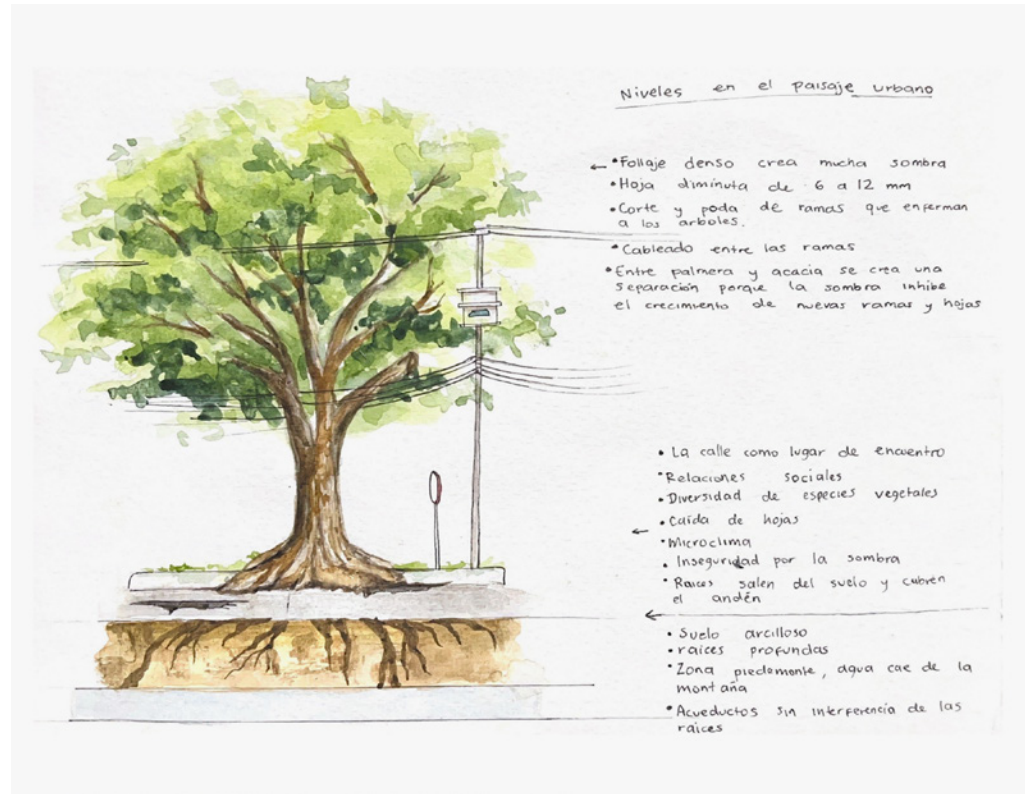 Niveles en el paisaje urbano
•Follaje denso crea mucha sombra
•Hoja diminuta de 6 a 12 mm
•Corte y poda de ramas que enferman
a los arboles.
•Cableado entre las ramas
•Entre palmera y acacia se crea una
separación porque la sombra inhibe
el crecimiento de nuevas ramas y hojas
• La calle como lugar de encuentro
•Relaciones sociales
•Diversidad de especies vegetales
•Caída de hojas
•Microclima
• Inseguridad por la sombra
•Raices salen del suelo y cubren
el andén
• Suelo arcilloso
•raices profundas
•Zona piedemonte, agua cae de la
montaña
•Acueductos sin interferencia de las
raices